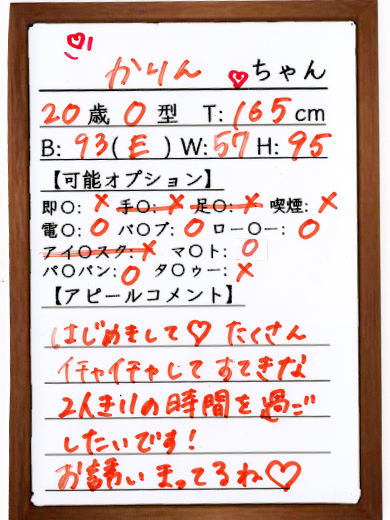 かりん ♡ちゃん
20歳 O型 T:165cm
B:93(E) W:57 H:95
【可能オプション】
即〇:× 手〇:× 足〇:× 喫煙:×
電〇:〇 バ〇ブ:〇 ロー〇ー:〇
アイ〇スク:× マ〇ト:〇
パ〇パン:〇 タ〇ゥー:×
【アピールコメント】
はじめまして♡ たくさん
イチャイチャして すてきな
2人きりの時間を過ご
したいです!
お誘いまってるね♡